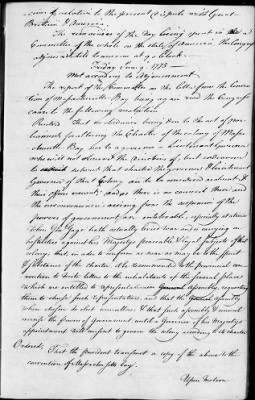 sures & relative to the present dispute with Great
Britain & America.
The remainder of the day being spent in a
Committee of the whole on the state of America the Congress
adjourned till tomorrow at 9 o'Clock
Friday June 9 1775
Met according to adjournment.
The report of the Committee on the letter from the Conven
tion of Massachusetts Bay being again read the Congress
came to the following resolution
Resolved That no obedience being due to the act of par
liament for altering the Charter of the colony of Massa
chusetts Bay nor to a governor or lieutenant Governor
who will not observe the directions of, but endeavour
to subvert that charter the governor & lieutenant
Governor of that Colony are to be considered as absent &
their offices vacant; and as there is no council there and
the inconveniences arising from the suspension of the
powers of government are intolerable, especially at a time
when Gen. Gage hath actually levied war and is carrying on
hostilities against his Majestys peaceable & loyal subjects of that
colony; that in order to conform as near as may be to the spirit
& substance of the charter it be recommended to the provincial con
vention to write letters to the inhabitants of the several places
which are entitled to representation in assembly requesting
them to chuse such representatives, and that the assembly
when chosen do elect counsellors & that such assembly & council
exercise the powers of Government until a Governor of his Majestys
appointment will consent to govern the colony according to its charter
Ordered, That the president transmit a copy of the above to the
convention of Massachusetts bay.
Upon motion